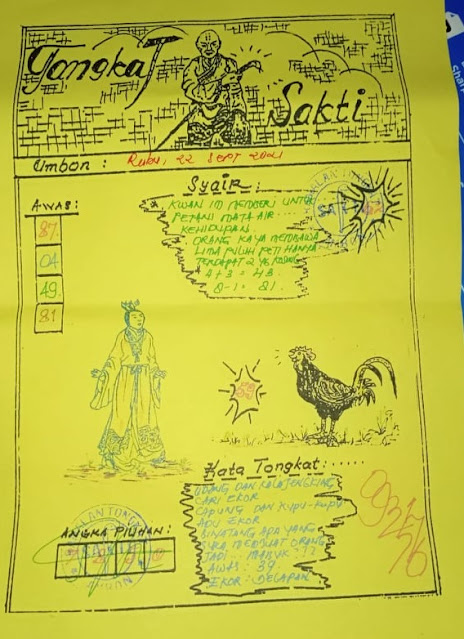 Tongkat
Sakti
Umbon : Rabu, 22 Sept 2021
Syair :
AWAS :
KWAN IM MEMBERI UNTUK
PETANI MATA AIR
KEHIDUPAN.
ORANG KAYA MEMBAWA
LIMA PULUH PETI HANYA
TERDAPAT 2 YG KOSONG
4 + 3 = 43.
8 - 1 = 81.
87
04
49
81
59
Kata Tongkat:
UDANG DAN KALAJENGKING
CARI EKOR
CAPUNG DAN KUPU-KUPU
ADU EKOR
BINATANG APA YANG
SUKA MEMBUAT ORANG
JADI MABUK ???
AWAS : 39.
EKOR : DELAPAN
ANGKA PILIHAN: